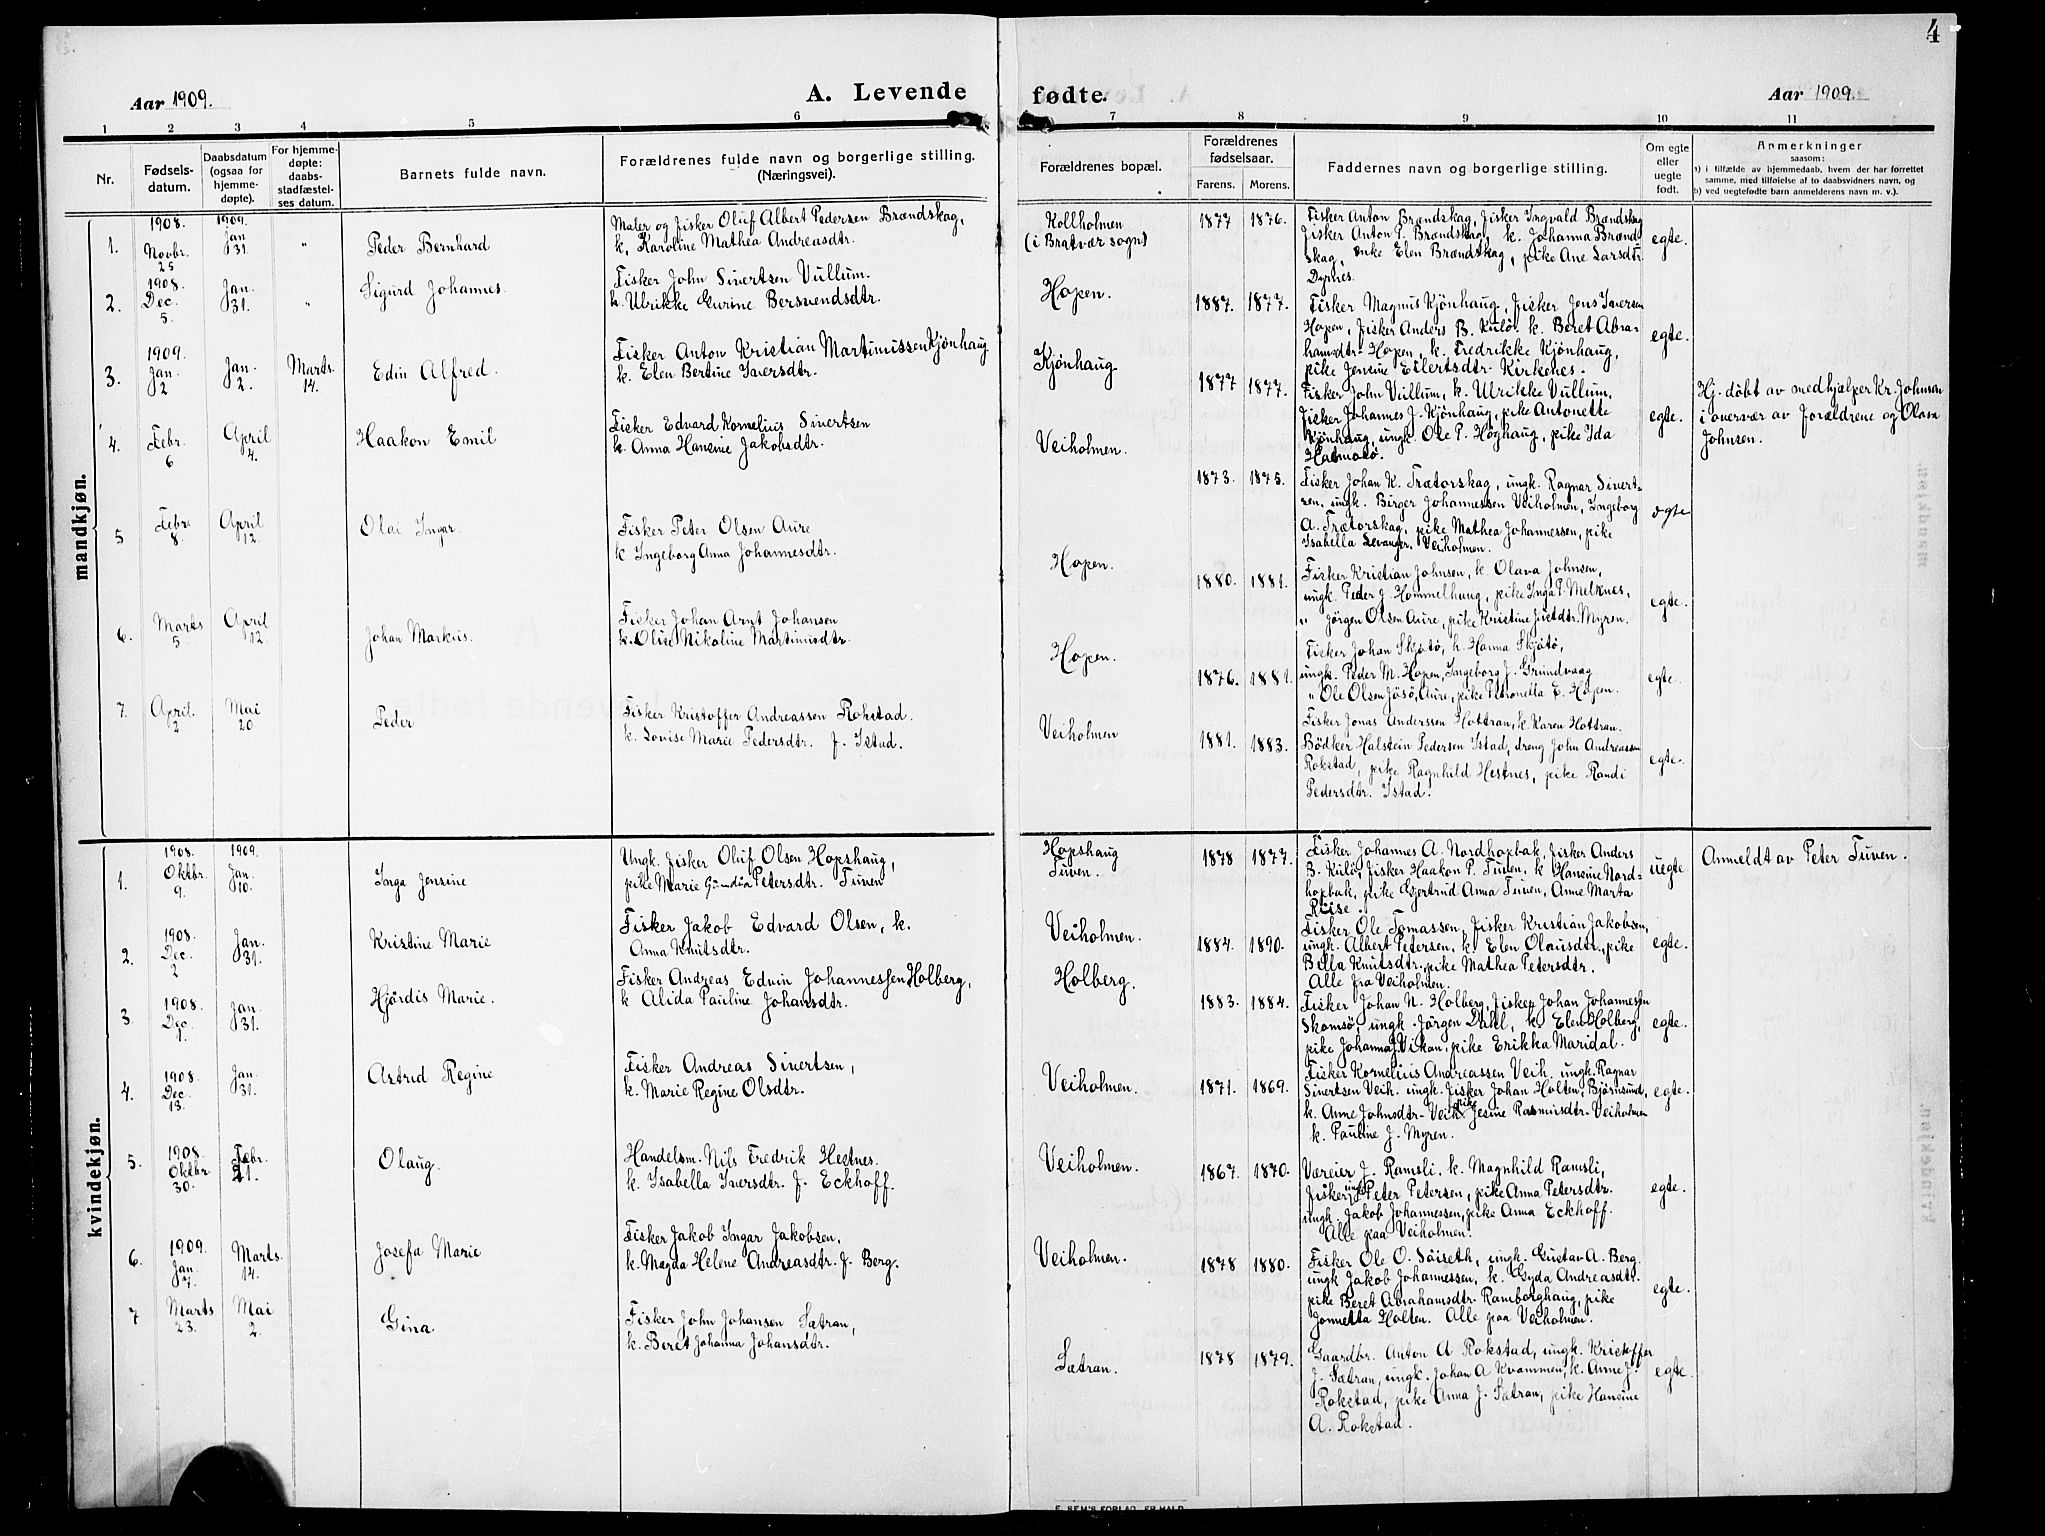 4
Aar 1909.
A. Levende
fødte.
Aar 1909.
1 2 3 4 5 6 7 8 9 10 11
Nr.
Fødsels-
datum.
Daabsdatum
(ogsaa for
hjemme-
døpte).
For hjemme-
døpte:
daabs-
stadfæstel-
ses datum.
Barnets fulde navn.
Forældrenes fulde navn og borgerlige stilling.
(Næringsvei).
Forældrenes bopæl.
Forældrenes
fødselsaar.
Farens. Morens.
Faddernes navn og borgerlige stilling.
Om egte
eller
uegte
født.
Anmerkninger
saasom:
a) i tilfælde av hjemmedaab, hvem der har forrettet
samme, med tilføielse af to daabsvidners navn, og
b) ved uegtefødte barn anmelderens navn m. v.).
mandkjøn.
1.
1908.
Novbr.
25
1909.
Jan
31.
"
Peder Bernhard
Maler og Fisker Oluf Albert Pedersen Brændskag,
k. Karoline Mathea Andreasdtr.
Kollholmen
(i Bratvær sogn)
1877 1876.
Fisker Anton Brændskag, Fisker Ingvald Brændskag
Fisker Anton P. Brændskag, k. Johanna Brænd-
skag, enke Elen Brændskag, pike Ane Larsdtr.
Dyrnes.
egte.
2.
1908
Dec.
5.
Jan.
31.
"
Sigurd Johannes.
Fisker John Sivertsen Vullum.
k. Ulrikke Gurine Bersvendsdtr.
Hopen.
1887. 1877.
Fisker Magnus Kjønhaug, Fisker Jens Iversen
Hopen, Fisker Anders B. Kulø. k. Beret Abra-
hamsdtr. Hopen, k. Fredrikke Kjønhaug,
pike Jensine Eilertsdtr. Kirkenes.
egte.
3.
1909.
Jan.
2
Jan.
2.
Marts.
14.
Edin Alfred.
Fisker Anton Kristian Martinussen Kjønhaug
k. Elen Bertine Iversdtr.
Kjønhaug.
1877 1877.
Fisker John Vullum, k. Ulrikke Vullum.
Fisker Johannes J. Kjønhaug, pike Antonette
Kjønhaug, ungk. Ole P. Høghaug, pike Ida
egte.
Hj. døbt av medhjælper Kr. Johnsen
i overvær av forældrene og Olava
Johnsen.
4.
Febr.
6
April
4.
Haakon Emil
Fisker Edvard Kornelius Sivertsen
k. Anna Hansine Jakobsdtr.
Veiholmen.
1873. 1875.
Fisker Johan K. Trætorskag, ungk. Ragnar Sivert-
sen, ungk. Birger Johannessen Veiholmen, Ingeborg
A. Trætorskag, pike Mathea Johannessen, pike
Isabella Levanger, Veiholmen.
egte
5
Febr.
8.
April
12.
Olai Ingar.
Fisker Peter Olsen Aure
k. Ingeborg Anna Johannesdtr.
Hopen.
1880. 1881.
Fisker Kristian Johnsen, k. Olava Johnsen,
ungk. Peder J. Hommelhaug, pike Inga P. Melknes,
" Jørgen Olsen Aure, pike Kristine Justdtr. Myren.
egte.
6.
Marts
5
April
12.
Johan Markus.
Fisker Johan Arnt Johansen
k. Olise Nikoline Martinusdtr.
Hopen.
1876. 1881.
Fisker Johan Skjøtø, k. Hanna Skjøtø,
ungk. Peder M. Hopen, Ingeborg J. Grundvaag
" Ole Olsen Jøsø, Aure, pike Petronella E. Hopen.
egte.
7.
April.
2
Mai
20
Peder.
Fisker Kristoffer Andreassen Rokstad.
k. Lovise Marie Pedersdtr. f. Istad.
Veiholmen
1881. 1883.
Fisker Jonas Anderssen Hottran, k. Karen Hottran.
Bødker Halstein Pedersen Istad, dreng John Andreassen
Rokstad, pike Ragnhild Hestnes, pike Randi
Pedersdtr. Istad.
egte.
kvindekjøn.
1.
1908.
Oktbr.
9.
1909.
Jan.
10.
Inga Jensine
Ungk. Fisker Oluf Olsen Hopshaug,
pike Marie Petersdtr. Tuven
Hopshaug
Tuven.
1878 1877.
Fisker Johannes A. Nordhopbak, Fisker Anders
B. Kulø, Fisker Haakon P. Tuven, k Hansine Nord-
hopbak, pike Gjertrud Anna Tuven, Anne Marta
Roise.
uegte
Anmeldt av Peter Tuven.
2.
1908.
Dec.
2
Jan.
31.
Kristine Marie
Fisker Jakob Edvard Olsen, k.
Anna Knutsdtr.
Veiholmen.
1884. 1890.
Fisker Ole Tomassen, Fisker Kristian Jakobsen,
ungk. Albert Petersen, k. Elen Olausdtr., pike
Billa Knutsdtr., pike Mathea Petersdtr.
Alle fra Veiholmen.
egte.
3.
1908.
Dec.
9.
Jan.
31.
Hjørdis Marie.
Fisker Andreas Edvin Johannessen Holberg,
k Alida Pauline Johansdtr.
Holberg.
1883. 1884.
Fisker Johan N. Holberg, Fisker Johan Johannessen
Skomsø, ungk. Jørgen Dahl, k. Elen Holberg,
pike Johanna J. Vikan, pike Erikka Maridal.
egte.
4.
1908
Dec.
13.
Jan.
31.
Astrid Regine
Fisker Andreas Sivertsen,
k. Marie Regine Olsdtr.
Veiholmen.
1871. 1869.
Fisker Kornelius Andreassen Veih. ungk. Ragnar
Sivertsen Veih. ungk. Fisker Johan Holten, Bjørnsund,
k. Anne Johnsdtr. Veih. pike Jesine Rasmusdtr. Veiholmen
k. Pauline J. Myren.
egte.
5.
1908.
Oktbr
30.
Febr.
21.
Olaug.
Handelsm. Nils Fredrik Hestnes.
k. Isabella Iversdtr. f. Eckhoff.
Veiholmen.
1867. 1870.
Væreier J. Ramsli, k. Magnhild Ramsli,
Fisker, ungk. Peter Petersen, pike Anna Petersdtr.
ungk. Jakob Johannessen, pike Anna Eckhoff.
Alle paa Veiholmen.
egte.
6
1909.
Jan.
7.
Marts.
14.
Josefa Marie
Fisker Jakob Ingar Jakobsen,
k. Magda Helene Andreasdtr. f. Berg.
Veiholmen.
1878 1880.
Fisker Ole O. Søiseth, ungk. Gustav A. Berg.
ungk Jakob Johannessen, k. Gyda Andreasdtr.
pike Beret Abrahamsdtr. Ramborghaug, pike
Jonnetta Holten. Alle paa Veiholmen.
egte.
7
Marts
23.
Mai
2.
Gina.
Fisker John Johansen Sætran,
k. Beret Johanna Johansdtr.
Sætran.
1878 1879.
Gaardbr. Anton A Rokstad, ungk. Kristoffer
J. Sætran, ungk. Johan A Kvammen, k. Anne J.
Rokstad, pike Anna J. Sætran, pike Hansine
A. Rokstad.
egte.
E. SEM'S FORLAG, FR.HALD